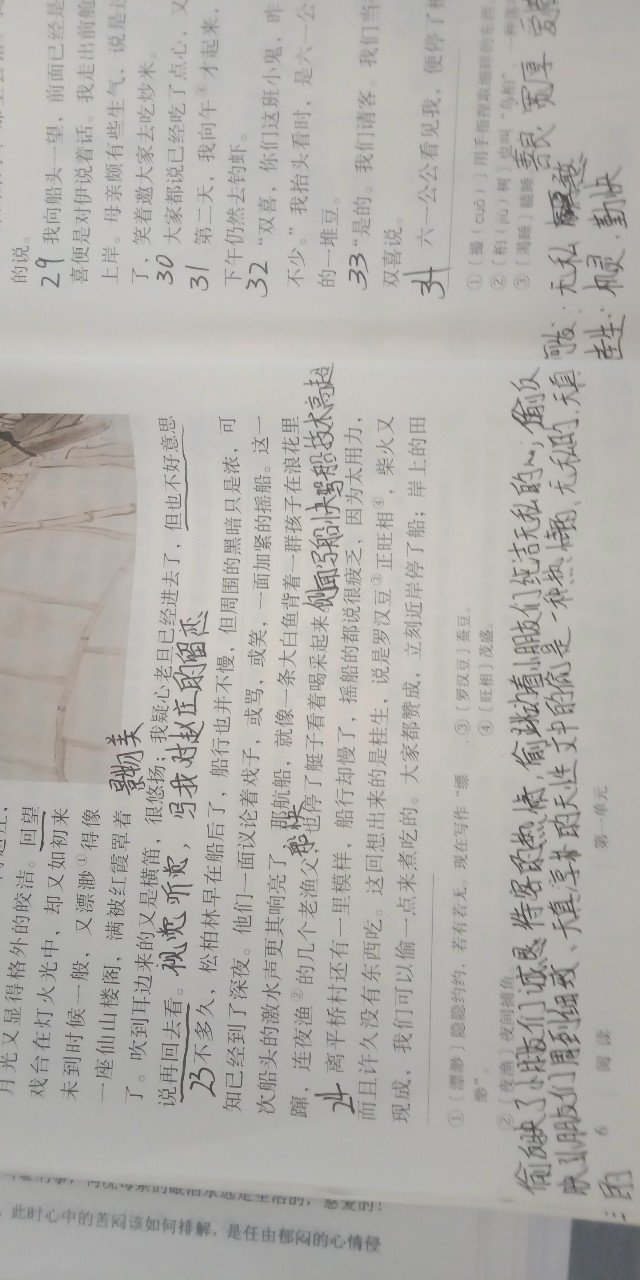 月光又显得格外的皎洁。回望
戏台在灯火光中，却又如初来
未到时候一般，又漂渺①得像
一座仙山楼阁，满被红霞罩着
景物美
了。吹到耳边来的又是横笛，很悠扬；我疑心老旦已经进去了，但也不好意思
说再回去看。视觉 听觉，写我对赵庄的留恋
23 不多久，松柏林早在船后了，船行也并不慢，但周围的黑暗只是浓，可
知已经到了深夜。他们一面议论着戏子，或骂，或笑，一面加紧的摇船。这一
次船头的激水声更其响亮了，那航船，就像一条大白鱼背着一群孩子在浪花里
蹿，连夜渔②的几个老渔父，也停了艇子看着喝采起来。侧面写船快写船技术高超
24 离平桥村还有一里模样，船行却慢了，摇船的都说很疲乏，因为太用力，
而且许久没有东西吃。这回想出来的是桂生，说是罗汉豆③正旺相④，柴火又
现成，我们可以偷一点来煮吃的。大家都赞成，立刻近岸停了船；岸上的田
①〔漂渺〕隐隐约约，若有若无。现在写作“缥
缈”。
②〔夜渔〕夜间捕鱼
③〔罗汉豆〕蚕豆。
④〔旺相〕茂盛。
偷反映了小朋友们诚恳待客的热情，偷 小朋友们纯洁无私的心；偷反
映小朋友们周到细致、天真淳朴的天性 文中的偷是一种热情的、无私的、天真
6 阅读 第一单元
的说。
29 我向船头一望，前面已经是
喜便是对伊说着话。我走出前舱
上岸。母亲颇有些生气，说是过
了，笑着邀大家去吃炒米。
30 大家都说已经吃了点心，又
31 第二天，我向午③才起来，
下午仍然去钓虾。
32 “双喜，你们这班小鬼，昨
不少。”我抬头看时，是六一公
的一堆豆。
33 “是的。我们请客。我们当
双喜说。
34 六一公公看见我，便停了楫
①〔撮（cuō）〕用手指捏取细碎的东西。
②〔桕（jiù）树〕也叫“乌桕”，一种落
③
阿发：无私 善良 宽厚
桂生：机灵 勤快
此时心中的苦闷该如何排解，是任由郁闷的心情侵